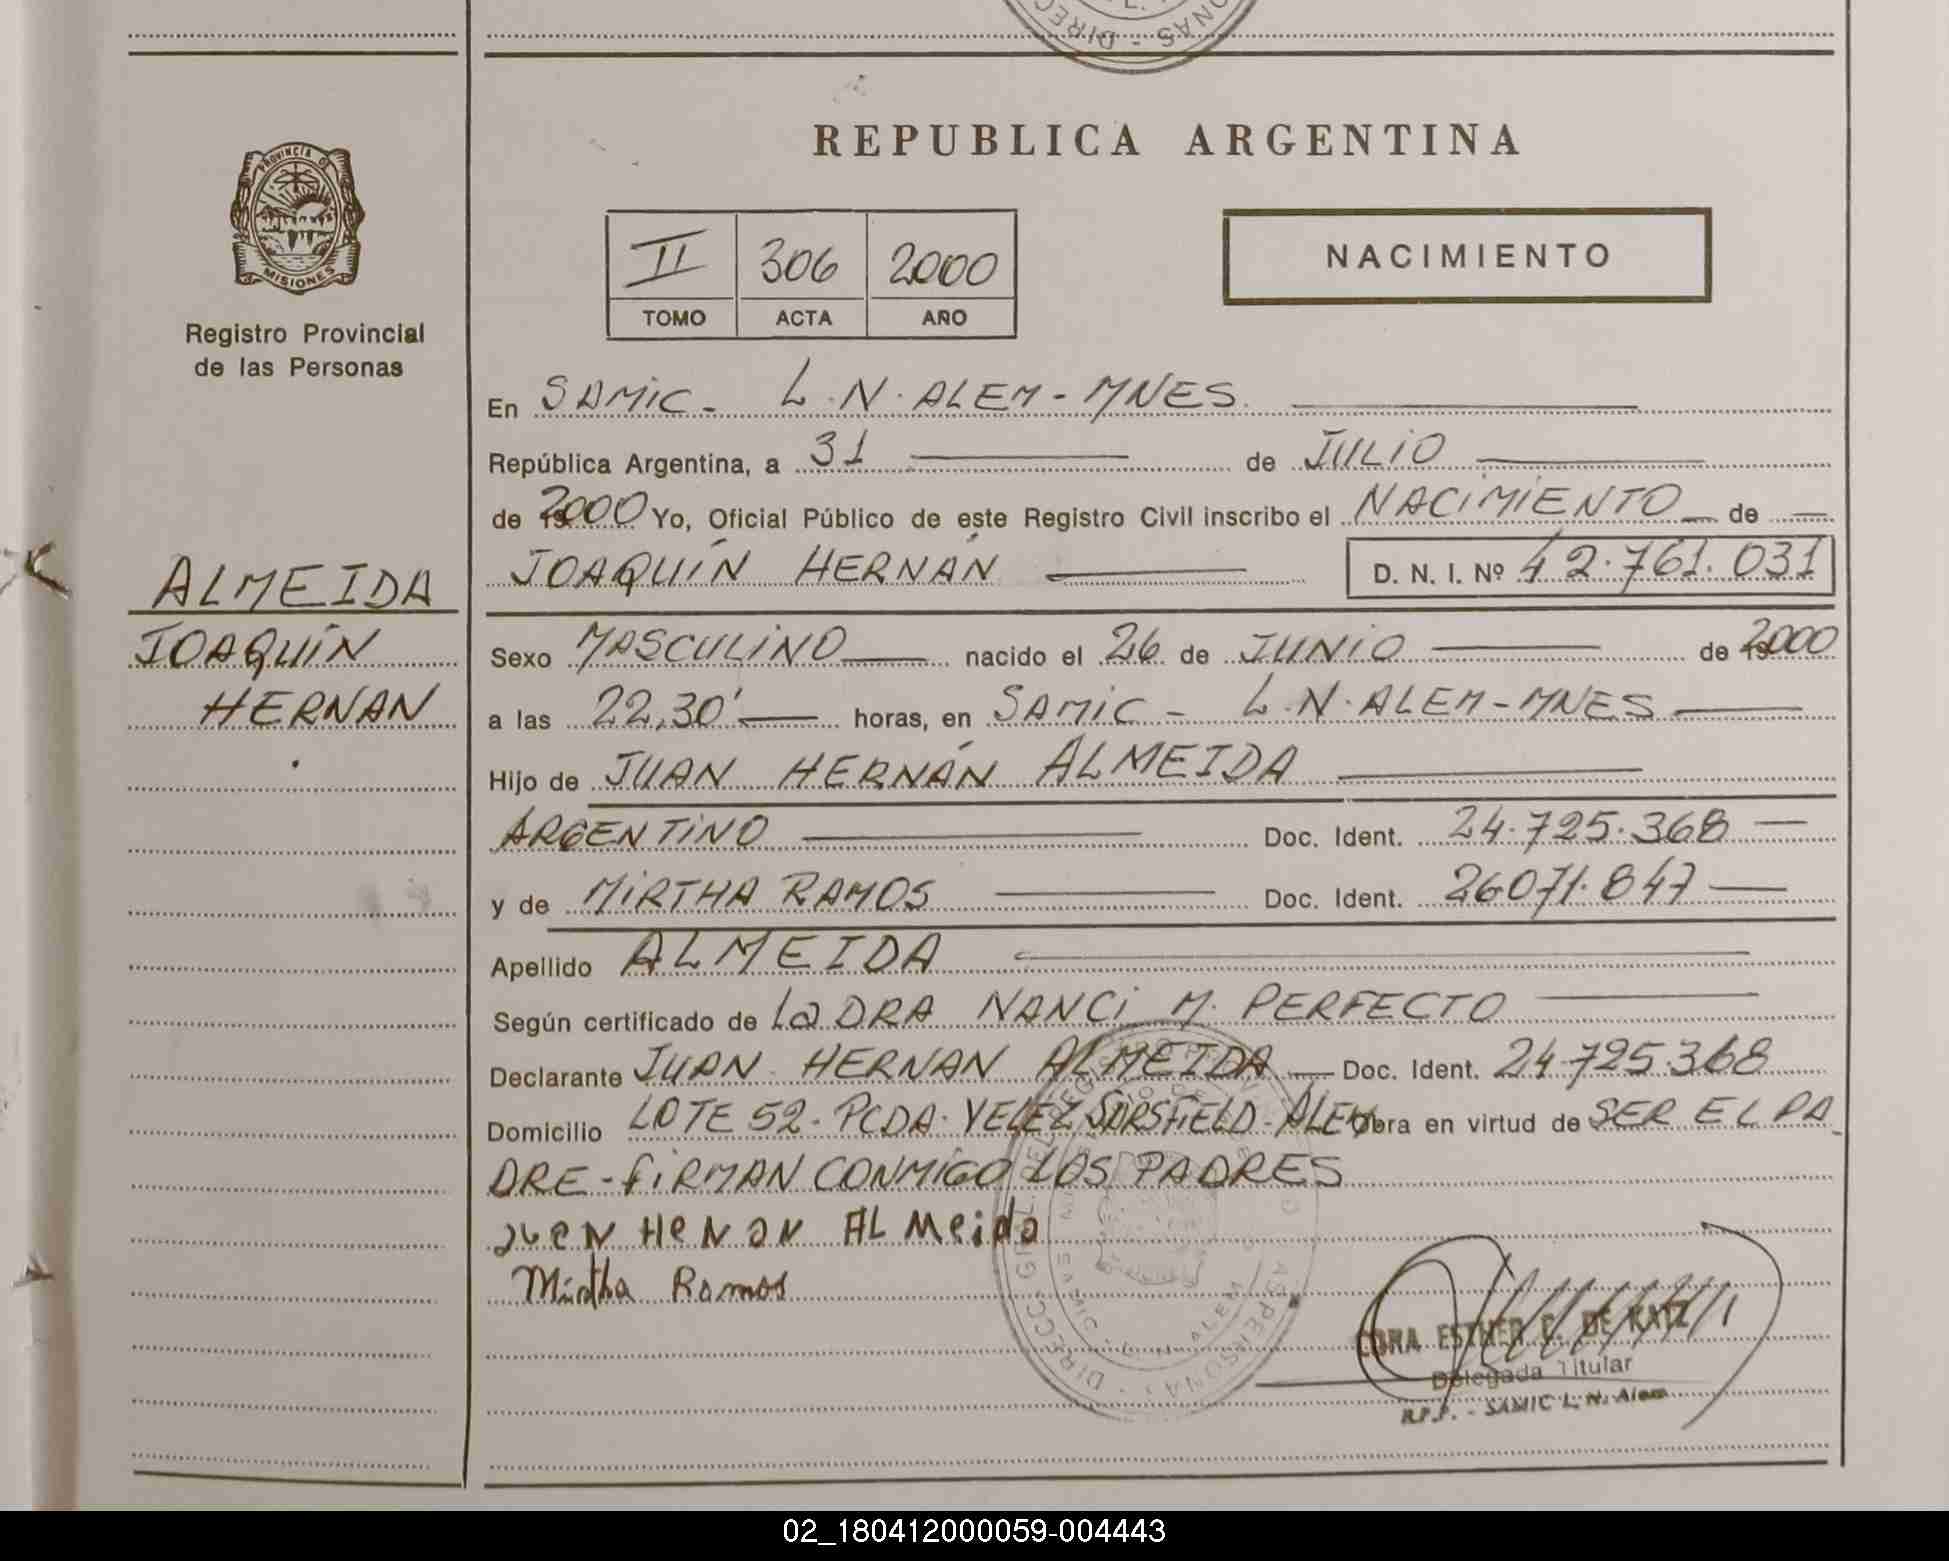 REPUBLICA ARGENTINA
PROVINCIA DE
MISIONES
Registro Provincial
de las Personas
II 306 2000
TOMO ACTA AÑO
NACIMIENTO
En SAMIC - L.N. ALEM - MNES.
República Argentina, a 31 de JULIO
de 2000 Yo, Oficial Público de este Registro Civil inscribo el NACIMIENTO de
JOAQUÍN HERNÁN D. N. I. Nº 42.761.031
ALMEIDA
JOAQUÍN
HERNAN
Sexo MASCULINO nacido el 26 de JUNIO de 2000
a las 22,30' horas, en SAMIC - L.N. ALEM - MNES
Hijo de JUAN HERNÁN ALMEIDA
ARGENTINO Doc. Ident. 24.725.368
y de MIRTHA RAMOS Doc. Ident. 26071.847
Apellido ALMEIDA
Según certificado de La DRA NANCI M. PERFECTO
Declarante JUAN HERNAN ALMEIDA Doc. Ident. 24.725.368
Domicilio LOTE 52 - PCDA. VELEZ SARSFIELD - ALEM Obra en virtud de SER EL PA
DRE - FIRMAN CONMIGO LOS PADRES
Juan HeNan ALMeida
Mirtha Ramos
CDRA. ESTHER C. DE KATZ
Delegada Titular
R.P.P. - SAMIC L. N. Alem
02_180412000059-004443